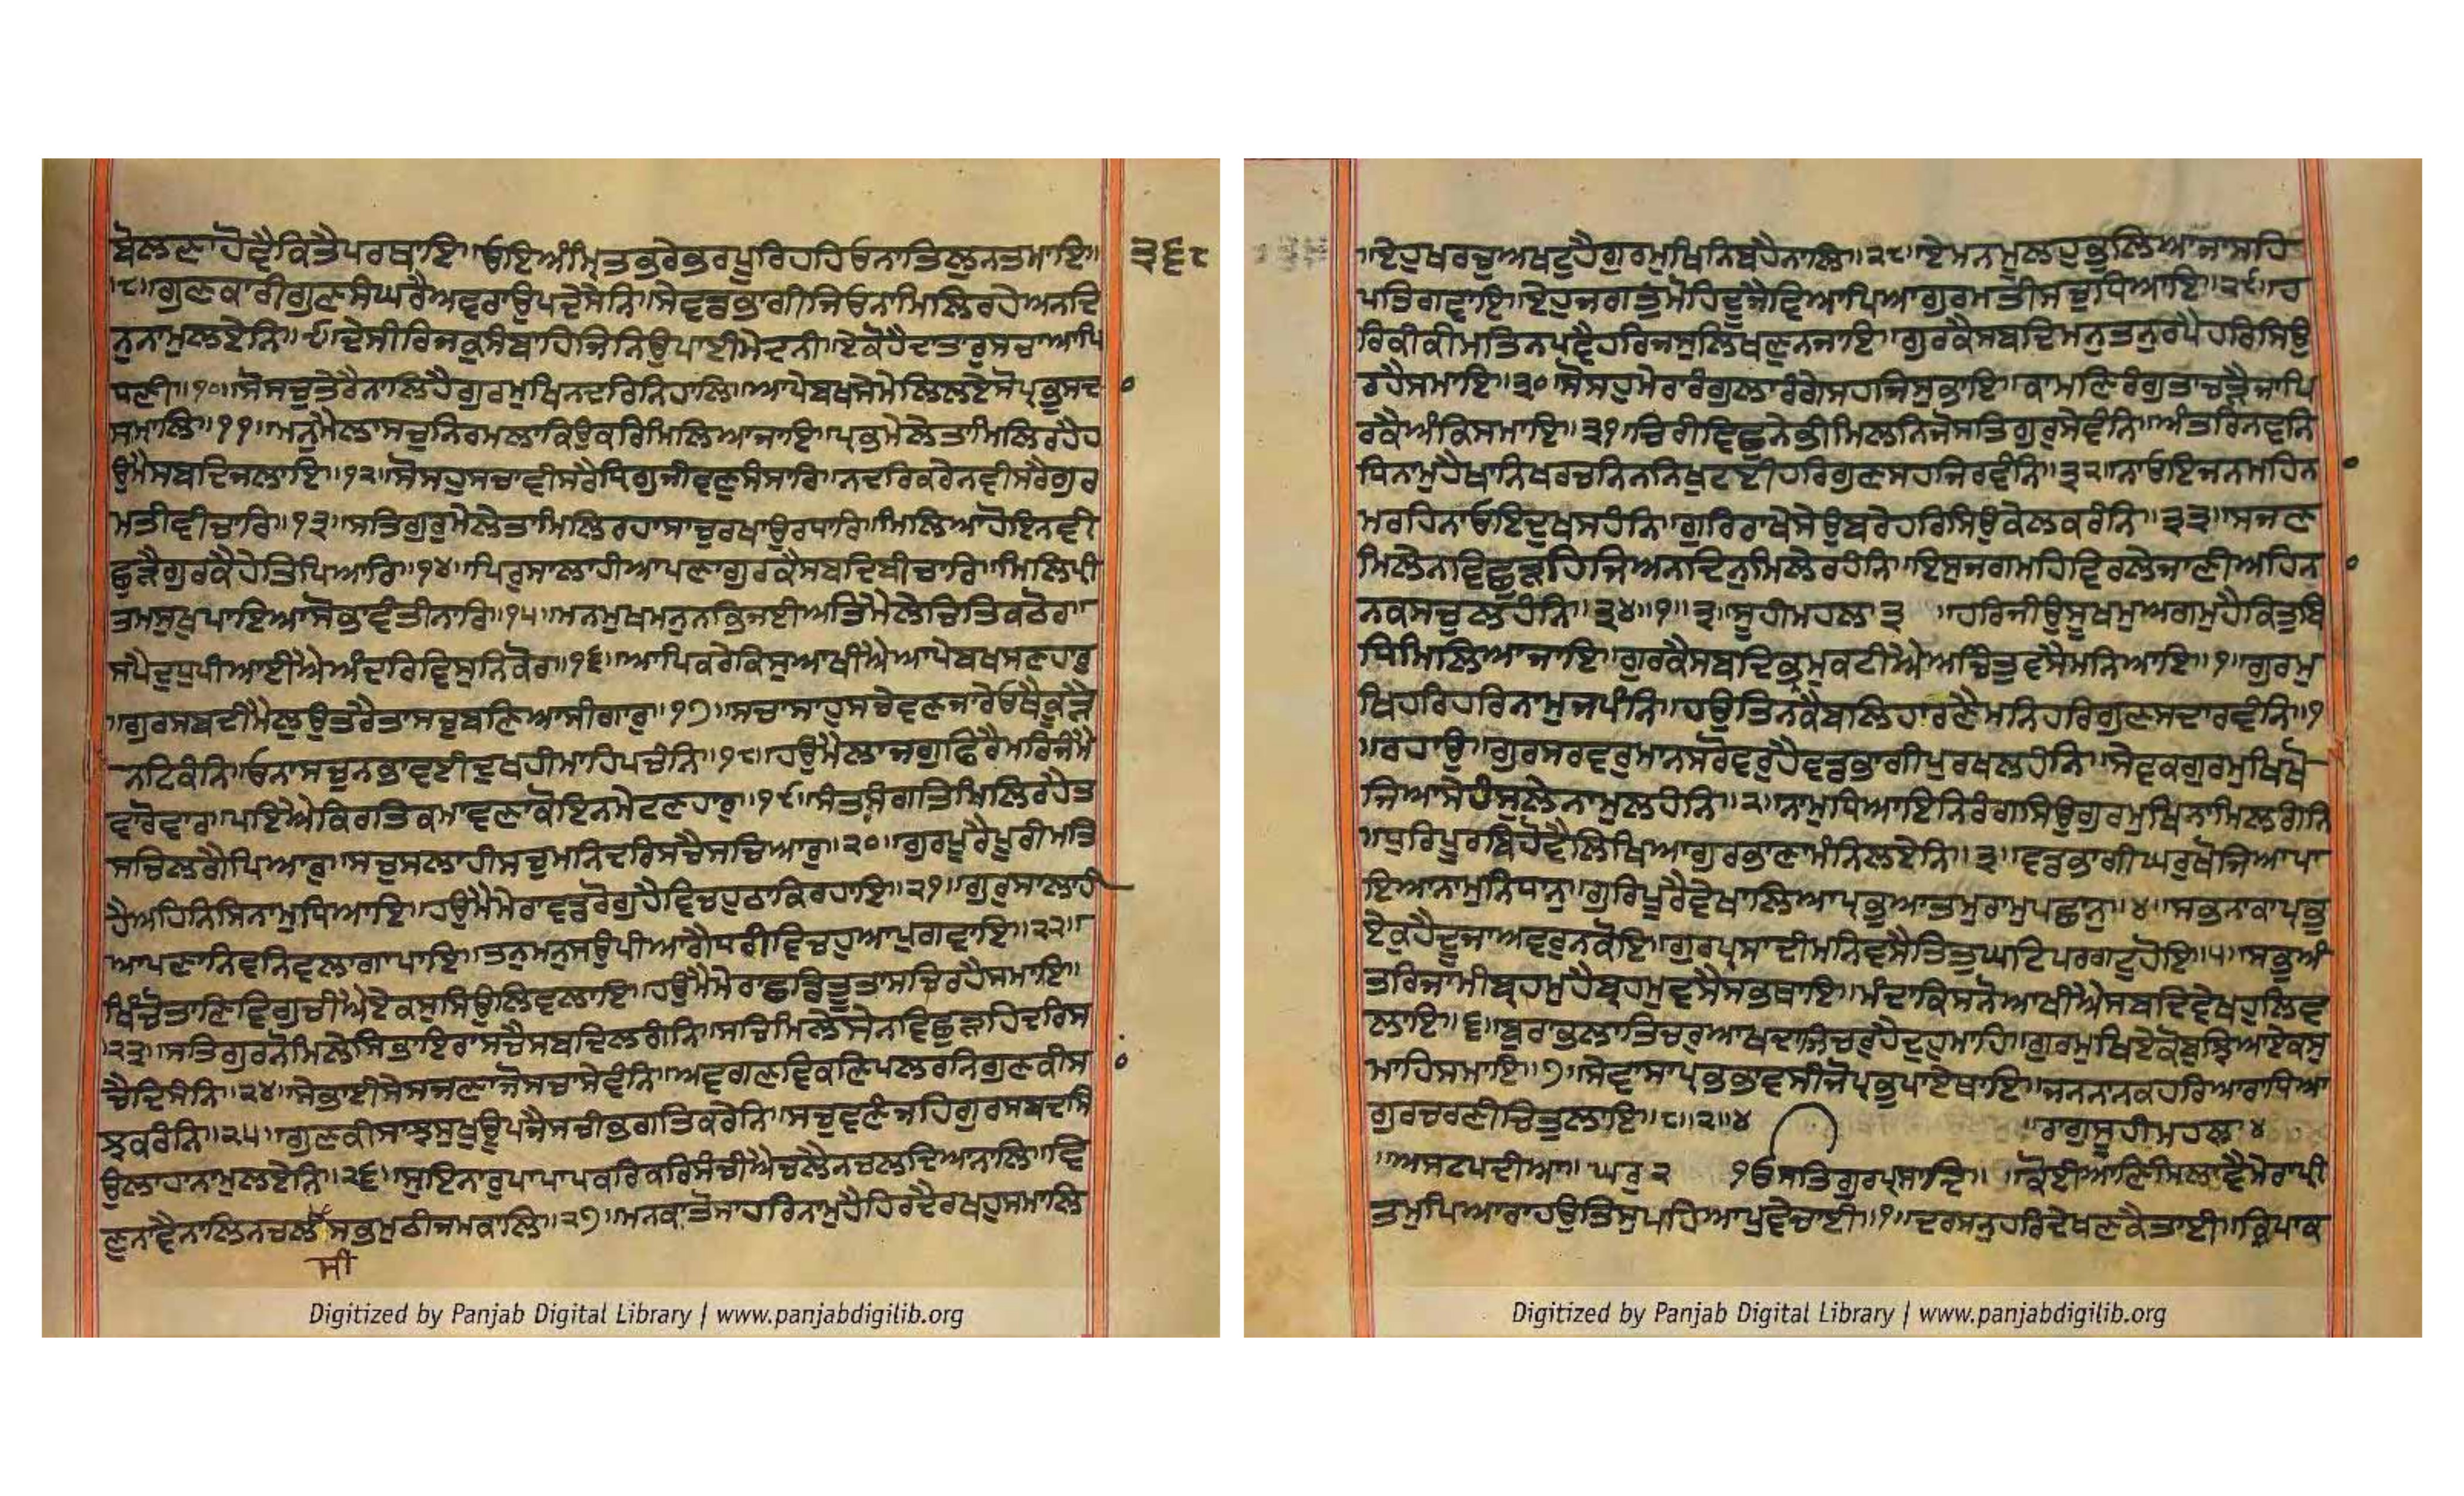 ਬੋਲਣਾਹੋਵੈਕਿਤੈਪਰਥਾਇ॥ਓਇਅੰਮ੍ਰਿਤਭਰੇਭਰਪੂਰਿਹਹਿਓਨਾਤਿਲੁਨਤਮਾਇ॥
੩੬੮
।੮।ਗੁਣਕਾਰੀਗੁਣਸੰਘਰੈਅਵਰਾਉਪਦੇਸੇਨਿ॥ਸੇਵਡਭਾਗੀਜਿਓਨਾਮਿਲਿਰਹੇਅਨਦਿ
ਨੁਨਾਮੁਲਏਨਿ॥੯॥ਦੇਸੀਰਿਜਕੁਸੰਬਾਹਿਜਿਨਿਉਪਾਈਮੇਦਨੀ॥ਏਕੋਹੈਦਾਤਾਰੁਸਚਾਆਪਿ
ਧਣੀ॥੧੦॥ਸੋਸਚੁਤੇਰੈਨਾਲਿਹੈਗੁਰਮੁਖਿਨਦਰਿਨਿਹਾਲਿ॥ਆਪੇਬਖਸੇਮੇਲਿਲਏਸੋਪ੍ਰਭੁਸਦ
ਸਮਾਲਿ॥੧੧॥ਮਨੁਮੈਲਾਸਚੁਨਿਰਮਲਾਕਿਉਕਰਿਮਿਲਿਆਜਾਇ॥ਪ੍ਰਭੁਮੇਲੇਤਾਮਿਲਿਰਹੈਹ
ਉਮੈਸਬਦਿਜਲਾਇ॥੧੨॥ਸੋਸਹੁਸਚਾਵੀਸਰੈਧਿਗੁਜੀਵਣੁਸੰਸਾਰਿ॥ਨਦਰਿਕਰੇਨਵੀਸਰੈਗੁਰ
ਮਤੀਵੀਚਾਰਿ॥੧੩॥ਸਤਿਗੁਰੁਮੇਲੇਤਾਮਿਲਿਰਹਾਸਾਚੁਰਖਾਉਰਧਾਰਿ॥ਮਿਲਿਆਹੋਇਨਵੀ
ਛੁੜੈਗੁਰਕੈਹੇਤਿਪਿਆਰਿ॥੧੪॥ਪਿਰੁਸਾਲਾਹੀਆਪਣਾਗੁਰਕੈਸਬਦਿਬੀਚਾਰਿ॥ਮਿਲਿਪ੍ਰੀ
ਤਮਸੁਖੁਪਾਇਆਸੋਭਾਵੰਤੀਨਾਰਿ॥੧੫॥ਮਨਮੁਖਮਨੁਨਭਿਜਈਅਤਿਮੈਲੇਚਿਤਿਕਠੋਰ॥
ਸਪੈਦੁਧੁਪੀਆਈਐਅੰਦਰਿਵਿਸੁਨਿਕੋਰ॥੧੬॥ਆਪਿਕਰੇਕਿਸੁਆਖੀਐਆਪੇਬਖਸਣਹਾਰੁ
॥ਗੁਰਸਬਦੀਮੈਲੁਉਤਰੈਤਾਸਚੁਬਣਿਆਸੀਗਾਰੁ॥੧੭॥ਸਚਾਸਾਹੁਸਚੇਵਣਜਾਰੇਓਥੈਕੂੜੇ
ਨਟਿਕੰਨਿ॥ਓਨਾਸਚੁਨਭਾਵਈਦੁਖਹੀਮਾਹਿਪਚੰਨਿ॥੧੮॥ਹਉਮੈਮੈਲਾਜਗੁਫਿਰੈਮਰਿਜੰਮੈ
ਵਾਰੋਵਾਰ॥ਪਇਐਕਿਰਤਿਕਮਾਵਣਾਕੋਇਨਮੇਟਣਹਾਰੁ॥੧੯॥ਸੰਤਸੰਗਤਿਮਿਲਿਰਹੈਤ
ਸਚਿਲਗੈਪਿਆਰੁ॥ਸਚੁਸਲਾਹੀਸਚੁਮਨਿਦਰਿਸਚੈਸਚਿਆਰੁ॥੨੦॥ਗੁਰਪੂਰੇਪੂਰੀਮਤਿ
ਹੈਅਹਿਨਿਸਿਨਾਮੁਧਿਆਇ॥ਹਉਮੈਮੇਰਾਵਡਰੋਗੁਹੈਵਿਚਹੁਠਾਕਿਰਹਾਇ॥੨੧॥ਗੁਰੁਸਾਲਾਹੀ
ਆਪਣਾਨਿਵਨਿਵਲਾਗਾਪਾਇ॥ਤਨੁਮਨੁਸਉਪੀਆਗੈਧਰੀਵਿਚਹੁਆਪੁਗਵਾਇ॥੨੨॥
ਖਿੰਚੋਤਾਣਿਵਿਗੁਚੀਐਏਕਸੁਸਿਉਲਿਵਲਾਇ॥ਹਉਮੈਮੇਰਾਛਡਿਤੂਤਾਸਚਿਰਹੈਸਮਾਇ॥
।੨੩॥ਸਤਿਗੁਰਨੋਮਿਲੇਸਿਭਾਇਰਾਸਚੈਸਬਦਿਲਗੰਨਿ॥ਸਚਿਮਿਲੇਸੇਨਵਿਛੁੜਹਿਦਰਿਸ
ਚੈਦਿਸੰਨਿ॥੨੪॥ਸੇਭਾਈਸੇਸਜਣਾਜੋਸਚਾਸੇਵੰਨਿ॥ਅਵਗਣਵਿਕਣਿਪਲਰਨਿਗੁਣਕੀਸ
ਝਕਰੰਨਿ॥੨੫॥ਗੁਣਕੀਸਾਝਸੁਖੁਊਪਜੈਸਚੀਭਗਤਿਕਰੇਨਿ॥ਸਚੁਵਣੰਜਹਿਗੁਰਸਬਦਸਿ
ਉਲਾਹਾਨਾਮੁਲਏਨਿ॥੨੬॥ਸੁਇਨਾਰੁਪਾਪਾਪਕਰਿਕਰਿਸੰਚੀਐਚਲੈਨਚਲਦਿਆਨਾਲਿ॥ਵਿ
ਣੁਨਾਵੈਨਾਲਿਨਚਲਸਭਮੁਠੀਜਮਕਾਲਿ॥੨੭॥ਮਨਕਾਤੋਸਾਹਰਿਨਾਮੁਹੈਹਿਰਦੈਰਖਹੁਸਮਾਲਿ
ਸੀ
॥ਇਹੁਖਰਚੁਅਖਟੁਹੈਗੁਰਮੁਖਿਨਿਬਹੈਨਾਲਿ॥੨੮॥ਏਮਨਮੂਲਹੁਭੁਲਿਆਜਾਸਹਿ
ਪਤਿਗਵਾਇ॥ਇਹੁਜਗਤੁਮੋਹਿਦੂਜੈਵਿਆਪਿਆਗੁਰਮਤੀਸਚੁਧਿਆਇ॥੨੯॥ਹ
ਰਿਕੀਕੀਮਤਿਨਪਵੈਹਰਿਜਸੁਲਿਖਣੁਨਜਾਇ॥ਗੁਰਕੈਸਬਦਿਮਨੁਤਨੁਰਪੈਹਰਿਸਿਉ
ਰਹੈਸਮਾਇ॥੩੦॥ਸੋਸਹੁਮੇਰਾਰੰਗੁਲਾਰੰਗੇਸਹਜਿਸੁਭਾਇ॥ਕਾਮਣਿਰੰਗੁਤਾਚੜੈਜਾਪਿ
ਰਕੈਅੰਕਿਸਮਾਇ॥੩੧॥ਚਿਰੀਵਿਛੁਨੇਭੀਮਿਲਨਿਜੋਸਤਿਗੁਰੁਸੇਵੰਨਿ॥ਅੰਤਰਿਨਵਨਿ
ਧਿਨਾਮੁਹੈਖਾਨਿਖਰਚਨਿਨਨਿਖੁਟਈਹਰਿਗੁਣਸਹਜਿਰਵੰਨਿ॥੩੨॥ਨਾਓਇਜਨਮਹਿਨ
ਮਰਹਿਨਾਓਇਦੁਖਸਹੰਨਿ॥ਗੁਰਿਰਾਖੇਸੇਉਬਰੇਹਰਿਸਿਉਕੇਲਕਰੰਨਿ॥੩੩॥ਸਜਣ
ਮਿਲੇਨਾਵਿਛੁੜਹਿਜਿਅਨਦਿਨੁਮਿਲੇਰਹੰਨਿ॥ਇਸੁਜਗਮਹਿਵਿਰਲੇਜਾਣੀਅਹਿਨ
ਨਕਸਚੁਲਹੰਨਿ॥੩੪॥੧॥੩॥ਸੂਹੀਮਹਲਾ੩ ॥ਹਰਿਜੀਉਸੂਖਮੁਅਗਮੁਹੈਕਿਤੁਬਿ
ਧਿਮਿਲਿਆਜਾਇ॥ਗੁਰਕੈਸਬਦਿਭ੍ਰਮੁਕਟੀਐਅਚਿੰਤੁਵਸੈਮਨਿਆਇ॥੧॥ਗੁਰਮੁ
ਖਿਹਰਿਹਰਿਨਾਮੁਜਪੰਨਿ॥ਹਉਤਿਨਕੈਬਲਿਹਾਰਣੈਮਨਿਹਰਿਗੁਣਸਦਾਰਵੰਨਿ॥੧
॥ਰਹਾਉ॥ਗੁਰਸਰਵਰੁਮਾਨਸਰੋਵਰੁਹੈਵਡਭਾਗੀਪੁਰਖਲਹੰਨਿ॥ਸੇਵਕਗੁਰਮੁਖਿਖੋ
ਜਿਆਸੇਹੰਸੁਲੇਨਾਮੁਲਹੰਨਿ॥੨॥ਨਾਮੁਧਿਆਇਨਿਰੰਗਸਿਉਗੁਰਮੁਖਿਨਾਮਿਲਗੰਨਿ
॥ਧੁਰਿਪੂਰਬਿਹੋਵੈਲਿਖਿਆਗੁਰਭਾਣਾਮੰਨਿਲਏਨਿ॥੩॥ਵਡਭਾਗੀਘਰੁਖੋਜਿਆਪਾ
ਇਆਨਾਮੁਨਿਧਾਨੁ॥ਗੁਰਿਪੂਰੈਵੇਖਾਲਿਆਪ੍ਰਭੁਆਤਮੁਰਾਮੁਪਛਾਨੁ॥੪॥ਸਭਨਾਕਾਪ੍ਰਭੁ
ਏਕੁਹੈਦੂਜਾਅਵਰੁਨਕੋਇ॥ਗੁਰਪ੍ਰਸਾਦੀਮਨਿਵਸੈਤਿਤੁਘਟਿਪਰਗਟੁਹੋਇ॥੫॥ਸਭੁਅੰ
ਤਰਿਜਾਮੀਬ੍ਰਹਮੁਹੈਬ੍ਰਹਮੁਵਸੈਸਭਥਾਇ॥ਮੰਦਾਕਿਸਨੋਆਖੀਐਸਬਦਿਵੇਖਹੁਲਿਵ
ਲਾਇ॥੬॥ਬੁਰਾਭਲਾਤਿਚਰੁਆਖਦਾਜਿਚਰੁਹੈਦੁਹੁਮਾਹਿ॥ਗੁਰਮੁਖਿਏਕੋਬੁਝਿਆਏਕਸੁ
ਮਾਹਿਸਮਾਇ॥੭॥ਸੇਵਾਸਾਪ੍ਰਭਭਾਵਸੀਜੋਪ੍ਰਭੁਪਾਏਥਾਇ॥ਜਨਨਾਨਕਹਰਿਆਰਾਧਿਆ
ਗੁਰਚਰਣੀਚਿਤੁਲਾਇ॥੮॥੨॥੪ ॥ਰਾਗੁਸੂਹੀਮਹਲਾ੪
॥ਅਸਟਪਦੀਆ॥ਘਰੁ੨ ੴਸਤਿਗੁਰਪ੍ਰਸਾਦਿ॥ ॥ਕੋਈਆਣਿਮਿਲਾਵੈਮੇਰਾਪ੍ਰੀ
ਤਮੁਪਿਆਰਾਹਉਤਿਸੁਪਹਿਆਪੁਵੇਚਾਈ॥੧॥ਦਰਸਨੁਹਰਿਦੇਖਣਕੈਤਾਈ॥ਕ੍ਰਿਪਾਕ
Digitized by Panjab Digital Library | www.panjabdigilib.org
Digitized by Panjab Digital Library | www.panjabdigilib.org